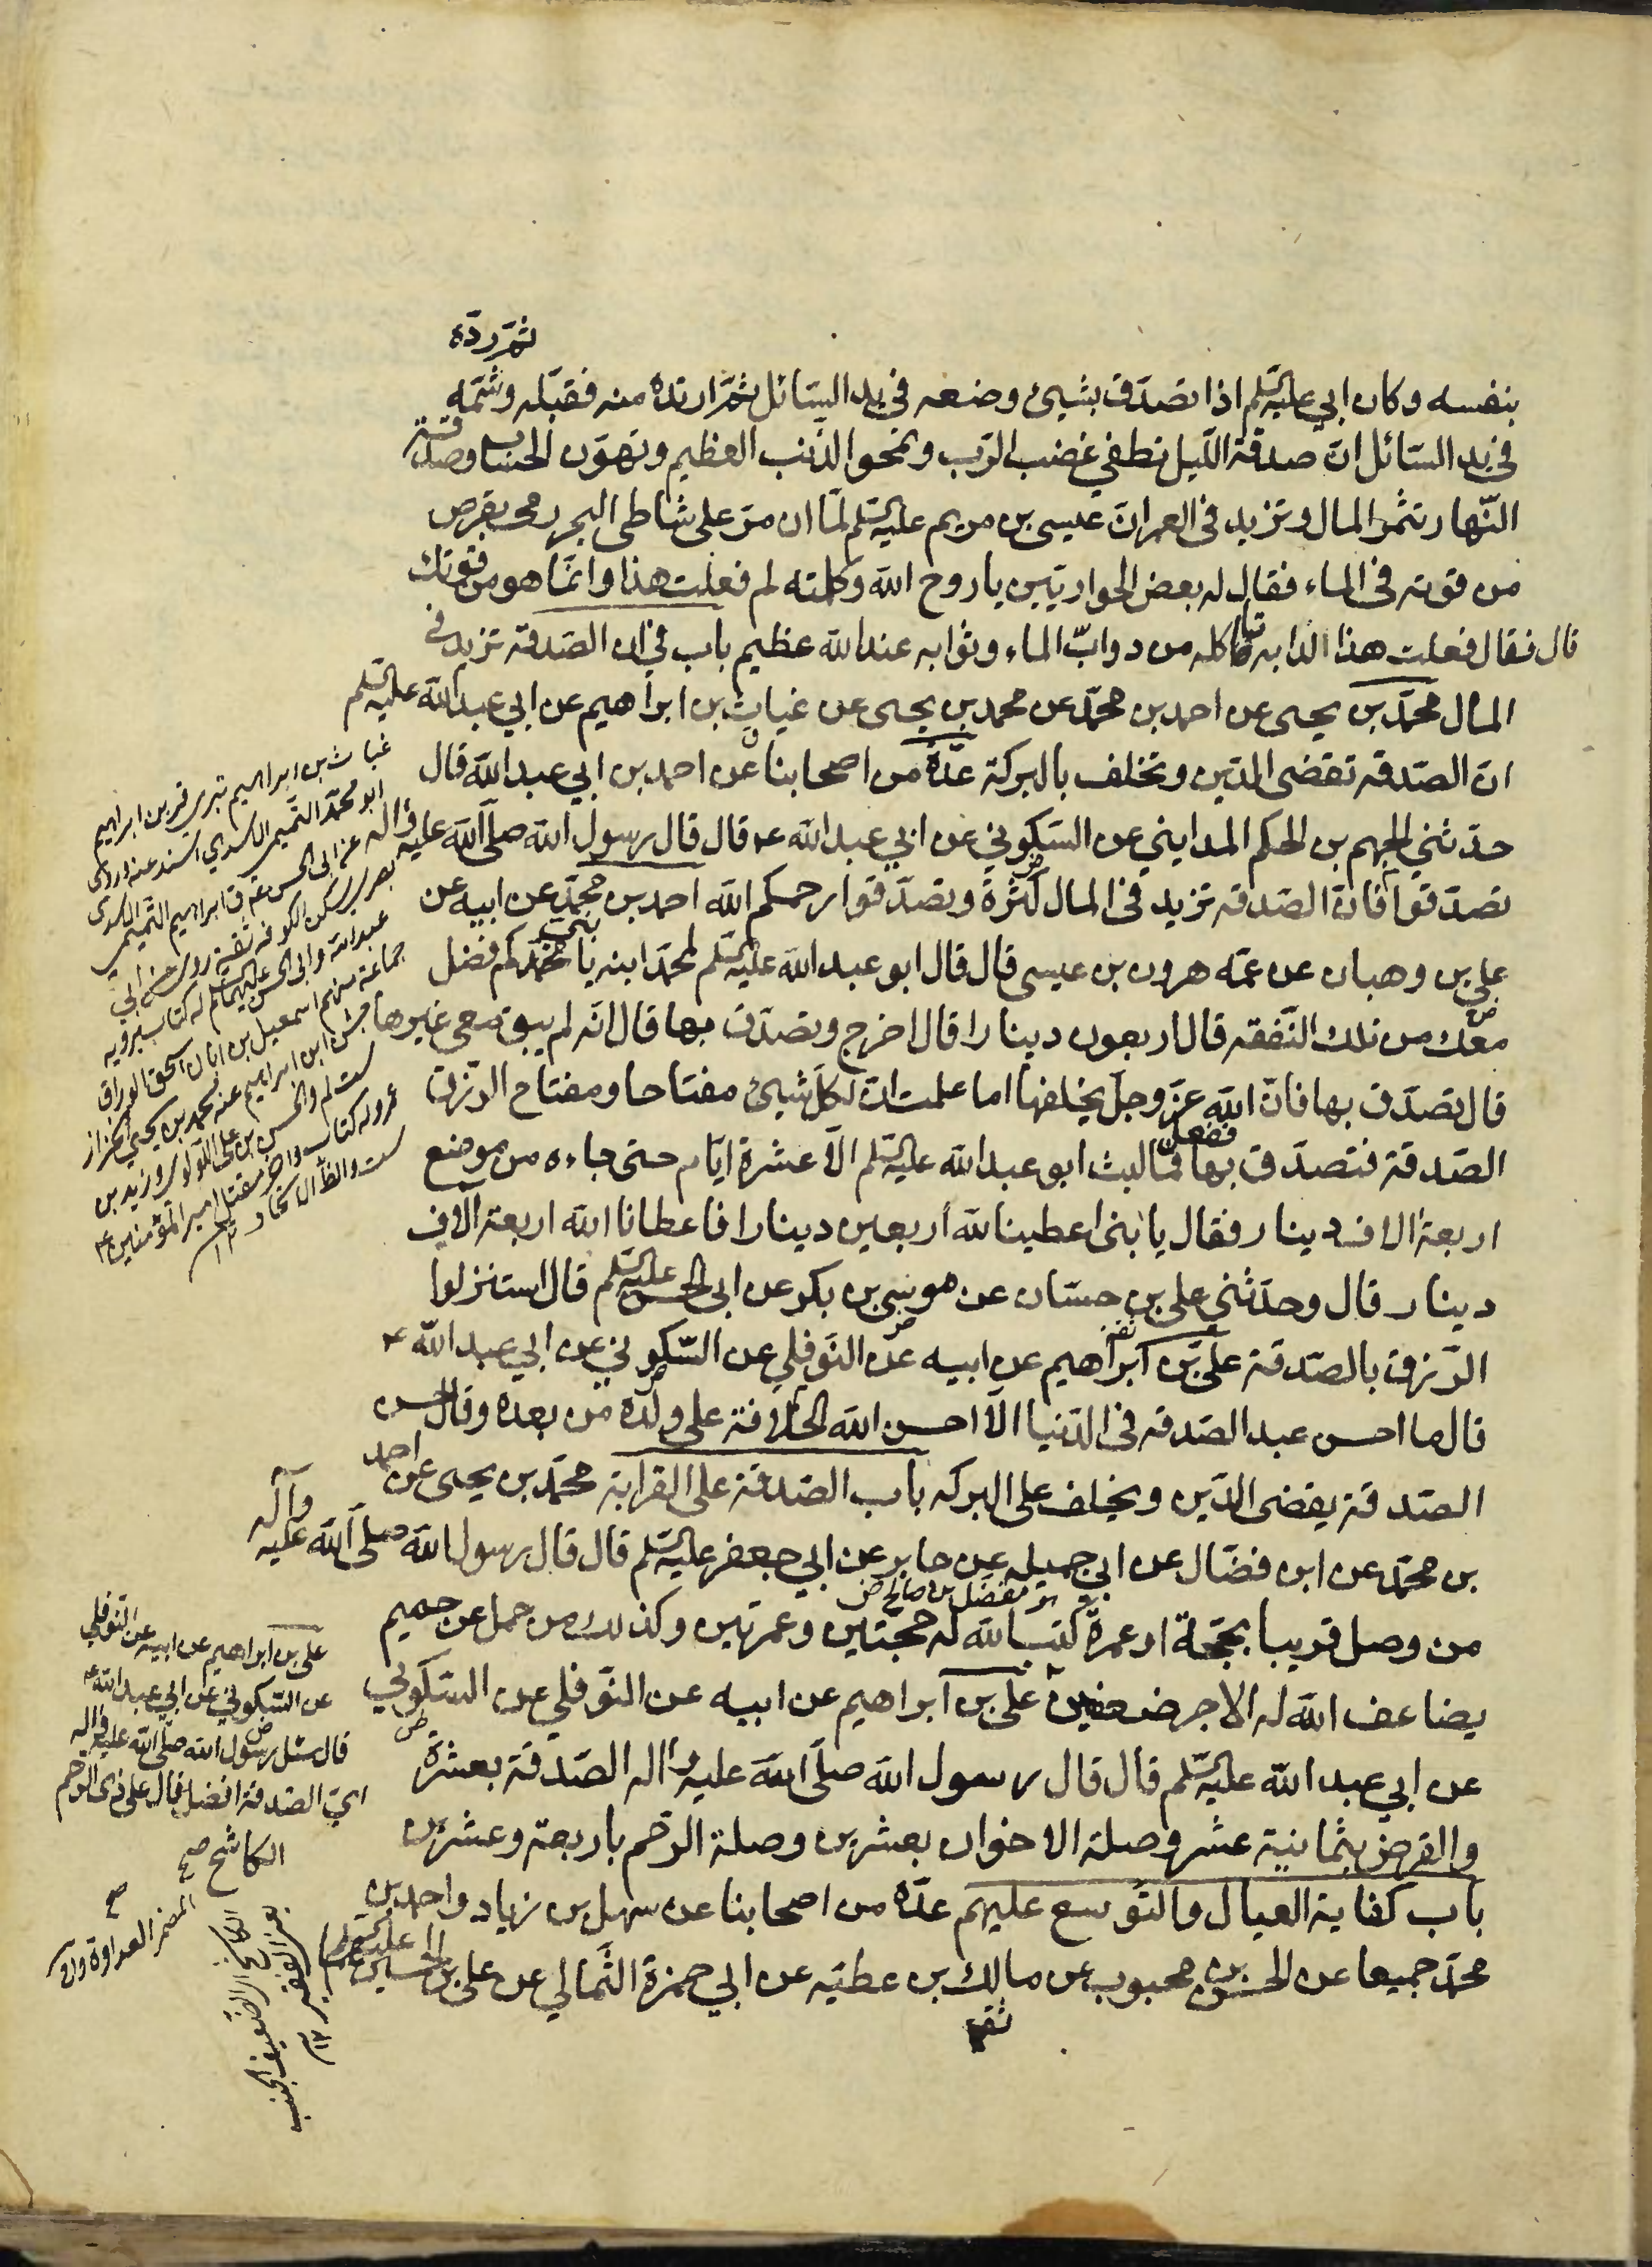 ثم رده
بنفسه وكان ابي عليه السلم اذا تصدق بشيئ وضعه في يد السائل ثم ارتده منه فقبله وشمه
في يد السائل ان صدقة الليل تطفي غضب الرب وتمحو الذنب العظيم وتهون الحساب وصدقة
النهار تثمر المال وتزيد في العمر ان عيسى بن مريم عليه السلم لما ان مر على شاطى البحر رمى بقرص
من قوته في الماء فقال له بعض الحواريين يا روح الله وكلمته لم فعلت هذا وانما هو من قوتك
قال فقال فعلت هذا لدابه تاكله من دواب الماء وثوابه عند الله عظيم باب في ان الصدقة تزيد في
المال محمد بن يحيى عن احمد بن محمد عن محمد بن يحيى عن غياث بن ابراهيم عن ابي عبد الله عليه السلم
ان الصدقه تقضى الدين وتخلف بالبركة عدة من اصحابنا عن احمد بن ابي عبد الله قال
حدثني الجهم بن الحكم المدايني عن السكوني عن ابي عبد الله ع قال قال رسول الله صلى الله عليه واله
تصدقوا فان الصدقه تزيد في المال كثرة وتصدقوا رحمكم الله احمد بن محمد عن ابيه عن
علي بن وهبان عن عمه هرون بن عيسى قال قال ابو عبد الله عليه السلم لمحمد ابنه يا بني كم فضل
معك من تلك النفقه قال اربعون دينارا قال اخرج وتصدق بها قال انه لم يبق معى غيرها
قال تصدق بها فان الله عز وجل يخلفها اما علمت ان لكل شيئ مفتاحا ومفتاح الرزق
الصدقة فتصدق بها ففعل فما لبث ابو عبد الله عليه السلم الا عشرة ايام حتى جاءه من موضع
اربعة الاف دينار فقال يا بنى اعطينا لله اربعين دينارا فاعطانا الله اربعة الاف
دينار قال وحدثنى على بن حسان عن موسى بن بكر عن ابى الحسن عليه السلم قال استنزلوا
الرزق بالصدقة علي بن ابراهيم عن ابيه عن النوفلي عن السكوني عن ابي عبد الله ع
قال ما احسن عبد الصدقه في الدنيا الا احسن الله الخلافة على ولده من بعده وقال حسن
الصدقة يقضى الدين ويخلف على البركه باب الصدقة على القرابة محمد بن يحيى عن احمد
بن محمد عن ابن فضال عن ابي جميله عن جابر عن ابي جعفر عليه السلم قال قال رسول الله صلى الله عليه وآله
مفضل بن صالح ض
من وصل قريبا بحجة او عمرة كتب الله له حجتين وعمرتين وكذلك من حمل عن حميم
يضاعف الله له الاجر ضعفين علي بن ابراهيم عن ابيه عن النوفلي عن السكوني
عن ابي عبد الله عليه السلم قال قال رسول الله صلى الله عليه واله الصدقة بعشرة
والقرض بثمانية عشر وصلة الاخوان بعشرين وصلة الرحم باربعة وعشرين
باب كفاية العيال والتوسع عليهم عدة من اصحابنا عن سهل بن زياد واحمد بن
محمد جميعا عن الحسن بن محبوب عن مالك بن عطيه عن ابي حمزة الثمالي عن علي بن الحسين عليه السلم
ثقه
غياث بن ابراهيم بن ابراهيم
ابو محمد التميمي الاسدي اسند عنه وروى
عن ابي الحسن ع ق ابراهيم التميمي الاسدى
بصري سكن الكوفه ثقة روى عن ابي
عبد الله وابي الحسن عليهما السلم له كتاب يرويه
جماعة منهم اسمعيل بن ابان بن اسحق الوراق
جش ابن ابراهيم عنه محمد بن يحيى الخزاز
علي بن ابراهيم عن ابيه عن النوفلي
عن السكوني عن ابي عبد الله ع
قال سئل رسول الله صلى الله عليه واله
اي الصدقة افضل قال على ذى الرحم
الكاشح صح
المضمر العداوة